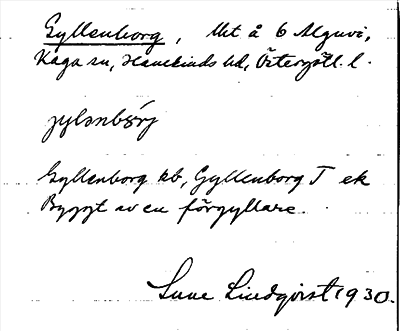 Gyllenborg, lht å 6 Alguvi,
Kaga sn, Hanekinds hd, Östergötl. l.
jylənbǒrj
Gyllenborg kb, Gyllenborg T ek
Byggt av en förgyllare.
Sune Lindqvist 1930.